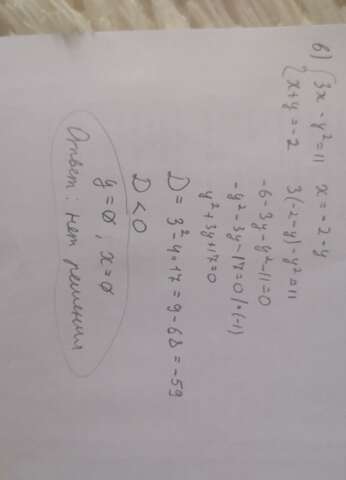 в) { 3x - y² = 11   x = -2 - y
x + y = -2   3(-2-y) - y² = 11
-6 - 3y - y² - 11 = 0
-y² - 3y - 17 = 0 / · (-1)
y² + 3y + 17 = 0
D = 3² - 4 · 17 = 9 - 68 = -59
D < 0
y = ∅, x = ∅
Ответ: нет решения